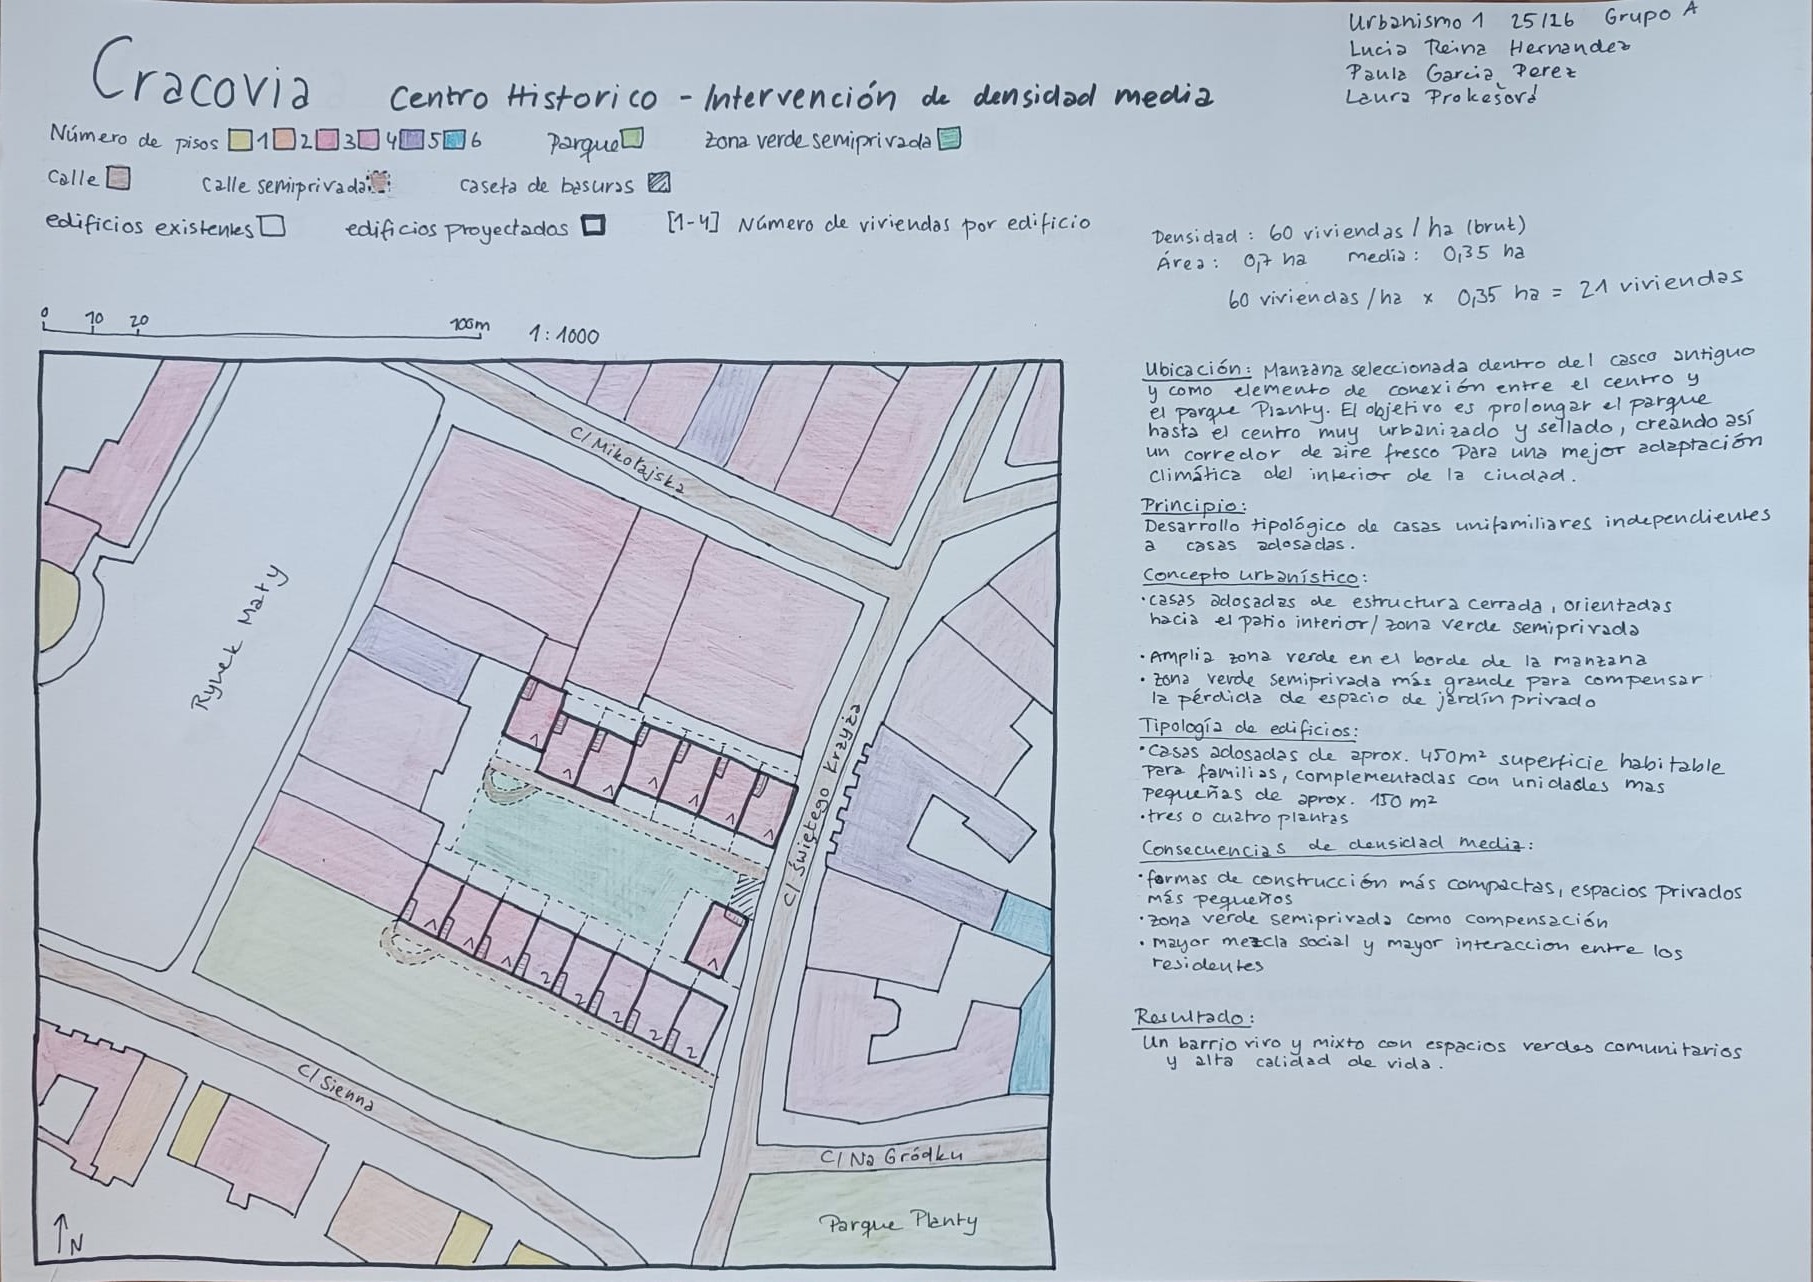 Urbanismo 1 25/26 Grupo A
Lucia Reina Hernandez
Paula Garcia Perez
Laura Prokešová
Cracovia Centro Historico - Intervención de densidad media
Número de pisos 1 2 3 4 5 6 Parque zona verde semiprivada
Calle Calle semiprivada caseta de basuras
edificios existentes edificios proyectados [1-4] Número de viviendas por edificio
Densidad: 60 viviendas / ha (brut)
Área: 0,7 ha media: 0,35 ha
60 viviendas/ha x 0,35 ha = 21 viviendas
0 10 20 100m 1:1000
Ubicación: Manzana seleccionada dentro del casco antiguo
y como elemento de conexión entre el centro y
el parque Planty. El objetivo es prolongar el parque
hasta el centro muy urbanizado y sellado, creando así
un corredor de aire fresco para una mejor adaptación
climática del interior de la ciudad.
Principio:
Desarrollo tipológico de casas unifamiliares independientes
a casas adosadas.
Concepto urbanístico:
·casas adosadas de estructura cerrada, orientadas
hacia el patio interior/zona verde semiprivada
·Amplia zona verde en el borde de la manzana
·zona verde semiprivada más grande para compensar
la pérdida de espacio de jardín privado
Tipología de edificios:
·Casas adosadas de aprox. 450m² superficie habitable
para familias, complementadas con unidades mas
pequeñas de aprox. 150 m²
·tres o cuatro plantas
Consecuencias de densidad media:
·formas de construcción más compactas, espacios privados
más pequeños
·zona verde semiprivada como compensación
·mayor mezcla social y mayor interaccion entre los
residentes
Resultado:
Un barrio vivo y mixto con espacios verdes comunitarios
y alta calidad de vida.
C/ Mikołajska
Rynek Mały
C/ Świętego Krzyża
1 1 1 1 1 1 1
1 1 1 2 2 2 2 2
1
C/ Sienna
C/ Na Gródku
Parque Planty
N